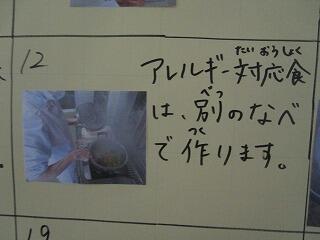 12
アレルギー対応食
たいおうしょく
は、別のなべ
べつ
で作ります。
つく
19